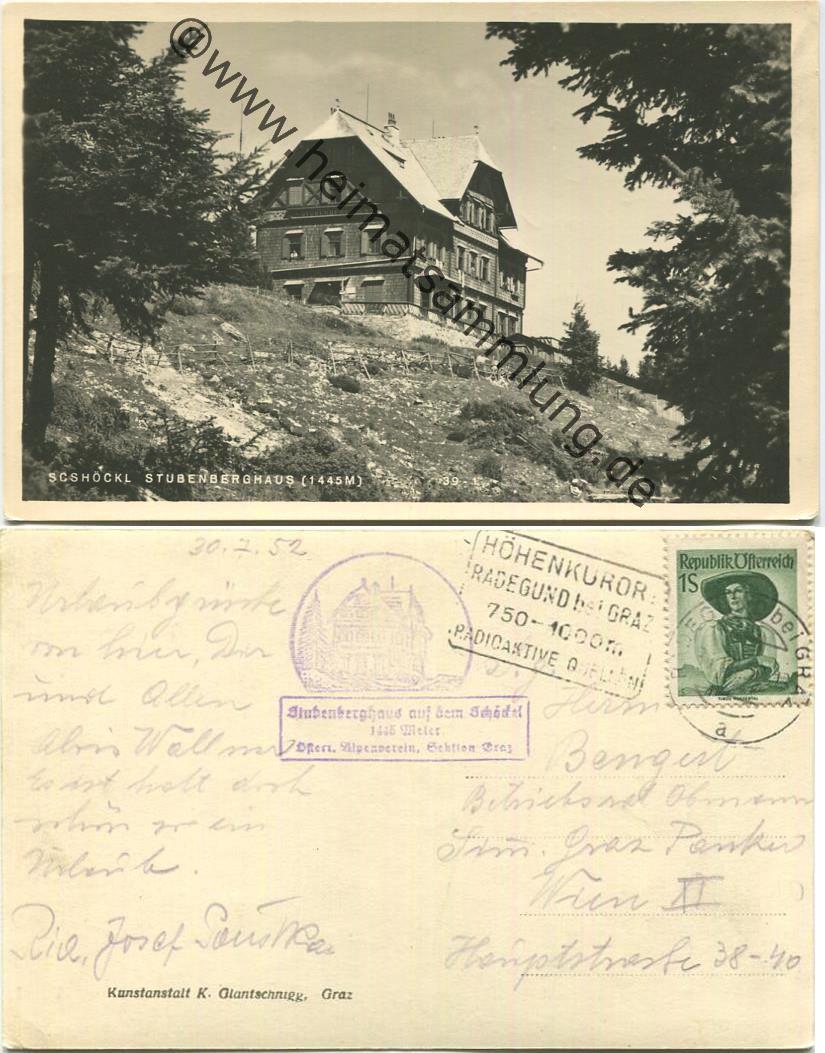 @www.heimatsammlung.de
SCSHÖCKL STUBENBERGHAUS (1445M) 39-1
30.7.52
HÖHENKURORT
RADEGUND bei GRAZ
750-1000m
RADIOAKTIVE QUELLEN
Republik Österreich
1S
bei GRAZ
a
Stubenberghaus auf dem Schöckl
1445 Meter
Österr. Alpenverein, Sektion Graz
Urlaubsgrüße
von hier, Dir
und Allen
Alois Wallner
Es ist halt doch
schön so ein
Urlaub.
Josef
Herrn
Bengert
Betriebsrat Obmann
Sim. Graz Pauker
Wien XI
Hauptstraße 38-40
Kunstanstalt K. Glantschnigg, Graz